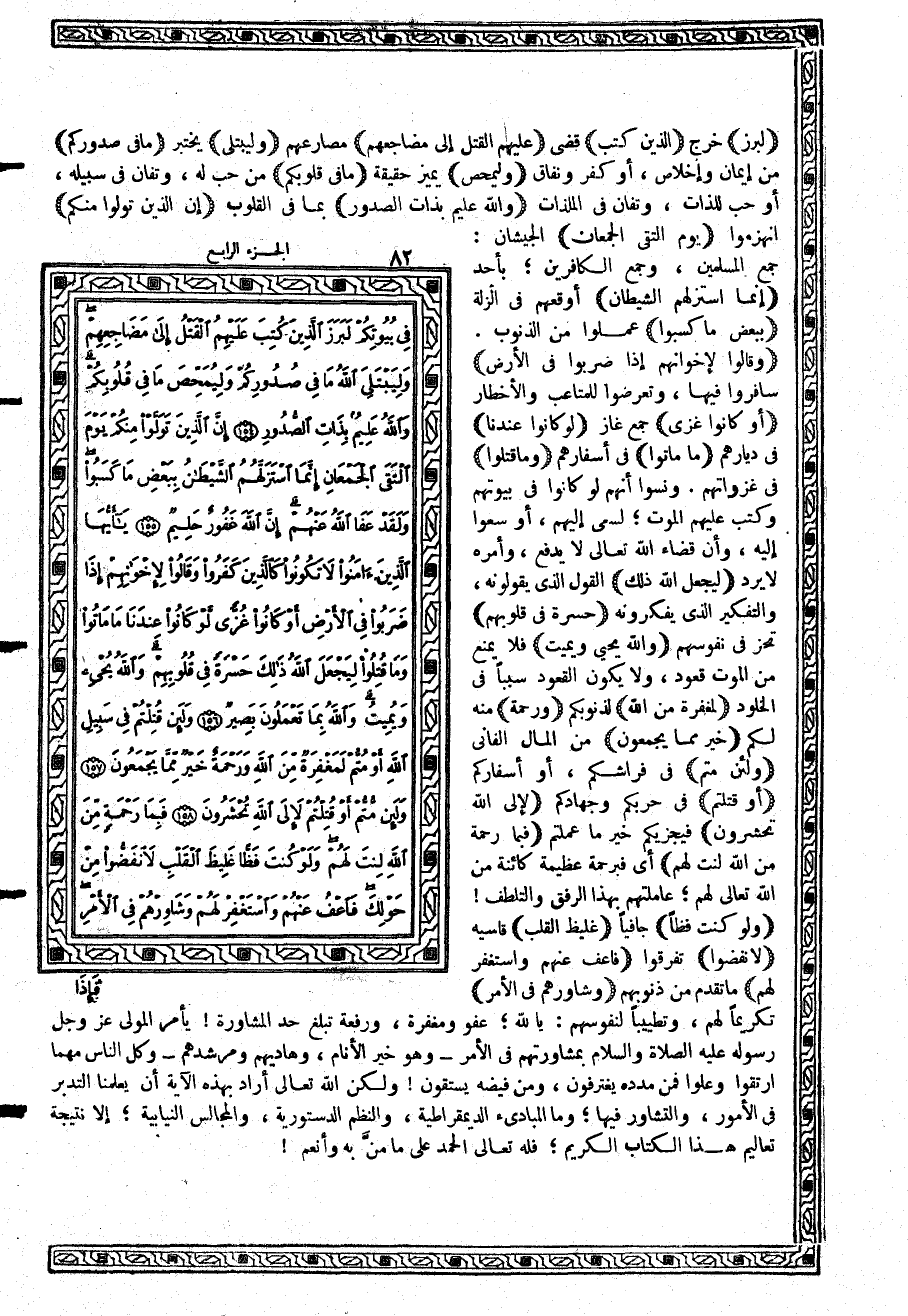 (لبرز) خرج (الذين كتب) قضى (عليهم القتل إلى مضاجعهم) مصارعهم (وليبتلى) يختبر (مافى صدوركم)
من إيمان وإخلاص ، أو كفر ونفاق (وليمحص) يميز حقيقة (مافى قلوبكم) من حب له ، وتفان فى سبيله ،
أو حب للذات ، وتفان فى الملذات (والله عليم بذات الصدور) بما فى القلوب (إن الذين تولوا منكم)
انهزموا (يوم التقى الجمعان) الجيشان :
جمع المسلمين ، وجمع الكافرين ؛ بأحد
(إنما استزلهم الشيطان) أوقعهم فى الزلة
(ببعض ما كسبوا) عملوا من الذنوب .
(وقالوا لإخوانهم إذا ضربوا فى الأرض)
سافروا فيها ، وتعرضوا للمتاعب والأخطار
(أو كانوا غزى) جمع غاز (لوكانوا عندنا)
فى ديارهم (ما ماتوا) فى أسفارهم (وماقتلوا)
فى غزواتهم . ونسوا أنهم لو كانوا فى بيوتهم
وكتب عليهم الموت ؛ لسى إليهم ، أو سعوا
إليه ، وأن قضاء الله تعالى لا يدفع ، وأمره
لايرد (ليجعل الله ذلك) القول الذى يقولونه ،
والتفكير الذى يفكرونه (حسرة فى قلوبهم)
تحز فى نفوسهم (والله يحيى ويميت) فلا يمنع
من الموت قعود ، ولا يكون القعود سبباً فى
الخلود (لمغفرة من الله) لذنوبكم (ورحمة) منه
لكم (خير مما يجمعون) من المال الفانى
(ولئن متم) فى فراشكم ، أو أسفاركم
(أو قتلتم) فى حربكم وجهادكم (لإلى الله
تحشرون) فيجزيكم خير ما عملتم (فبما رحمة
من الله لنت لهم) أى فبرحمة عظيمة كائنة من
الله تعالى لهم ؛ عاملتهم بهذا الرفق والتلطف !
(ولو كنت فظاً) جافياً (غليظ القلب) قاسيه
(لانفضوا) تفرقوا (فاعف عنهم واستغفر
لهم) ماتقدم من ذنوبهم (وشاورهم فى الأمر)
تكريماً لهم ، وتطييباً لنفوسهم : يا لله ؛ عفو ومغفرة ، ورفعة تبلغ حد المشاورة ! يأمر المولى عز وجل
رسوله عليه الصلاة والسلام بمشاورتهم فى الأمر – وهو خير الأنام ، وهاديهم ومرشدهم – وكل الناس مهما
ارتقوا وعلوا فمن مدده يغترفون ، ومن فيضه يستقون ! ولكن الله تعالى أراد بهذه الآية أن يعلمنا التدبر
فى الأمور ، والتشاور فيها ؛ وما المبادىء الديمقراطية ، والنظم الدستورية ، والمجالس النيابية ؛ إلا نتيجة
تعاليم هذا الكتاب الكريم ؛ فله تعالى الحمد على ما منَّ به وأنعم !
٨٢ الجزء الرابع
فِى بُيُوتِكُمْ لَبَرَزَ ٱلَّذِينَ كُتِبَ عَلَيْهِمُ ٱلْقَتْلُ إِلَىٰ مَضَاجِعِهِمْ ۖ
وَلِيَبْتَلِىَ ٱللَّهُ مَا فِى صُدُورِكُمْ وَلِيُمَحِّصَ مَا فِى قُلُوبِكُمْ ۗ
وَٱللَّهُ عَلِيمٌۢ بِذَاتِ ٱلصُّدُورِ ١٥٤ إِنَّ ٱلَّذِينَ تَوَلَّوْا۟ مِنكُمْ يَوْمَ
ٱلْتَقَى ٱلْجَمْعَانِ إِنَّمَا ٱسْتَزَلَّهُمُ ٱلشَّيْطَٰنُ بِبَعْضِ مَا كَسَبُوا۟ ۖ
وَلَقَدْ عَفَا ٱللَّهُ عَنْهُمْ ۗ إِنَّ ٱللَّهَ غَفُورٌ حَلِيمٌ ١٥٥ يَٰٓأَيُّهَا
ٱلَّذِينَ ءَامَنُوا۟ لَا تَكُونُوا۟ كَٱلَّذِينَ كَفَرُوا۟ وَقَالُوا۟ لِإِخْوَٰنِهِمْ إِذَا
ضَرَبُوا۟ فِى ٱلْأَرْضِ أَوْ كَانُوا۟ غُزًّى لَّوْ كَانُوا۟ عِندَنَا مَا مَاتُوا۟
وَمَا قُتِلُوا۟ لِيَجْعَلَ ٱللَّهُ ذَٰلِكَ حَسْرَةً فِى قُلُوبِهِمْ ۗ وَٱللَّهُ يُحْىِۦ
وَيُمِيتُ ۗ وَٱللَّهُ بِمَا تَعْمَلُونَ بَصِيرٌ ١٥٦ وَلَئِن قُتِلْتُمْ فِى سَبِيلِ
ٱللَّهِ أَوْ مُتُّمْ لَمَغْفِرَةٌ مِّنَ ٱللَّهِ وَرَحْمَةٌ خَيْرٌ مِّمَّا يَجْمَعُونَ ١٥٧
وَلَئِن مُّتُّمْ أَوْ قُتِلْتُمْ لَإِلَى ٱللَّهِ تُحْشَرُونَ ١٥٨ فَبِمَا رَحْمَةٍ مِّنَ
ٱللَّهِ لِنتَ لَهُمْ ۖ وَلَوْ كُنتَ فَظًّا غَلِيظَ ٱلْقَلْبِ لَٱنفَضُّوا۟ مِنْ
حَوْلِكَ ۖ فَٱعْفُ عَنْهُمْ وَٱسْتَغْفِرْ لَهُمْ وَشَاوِرْهُمْ فِى ٱلْأَمْرِ ۖ
فَإِذَا